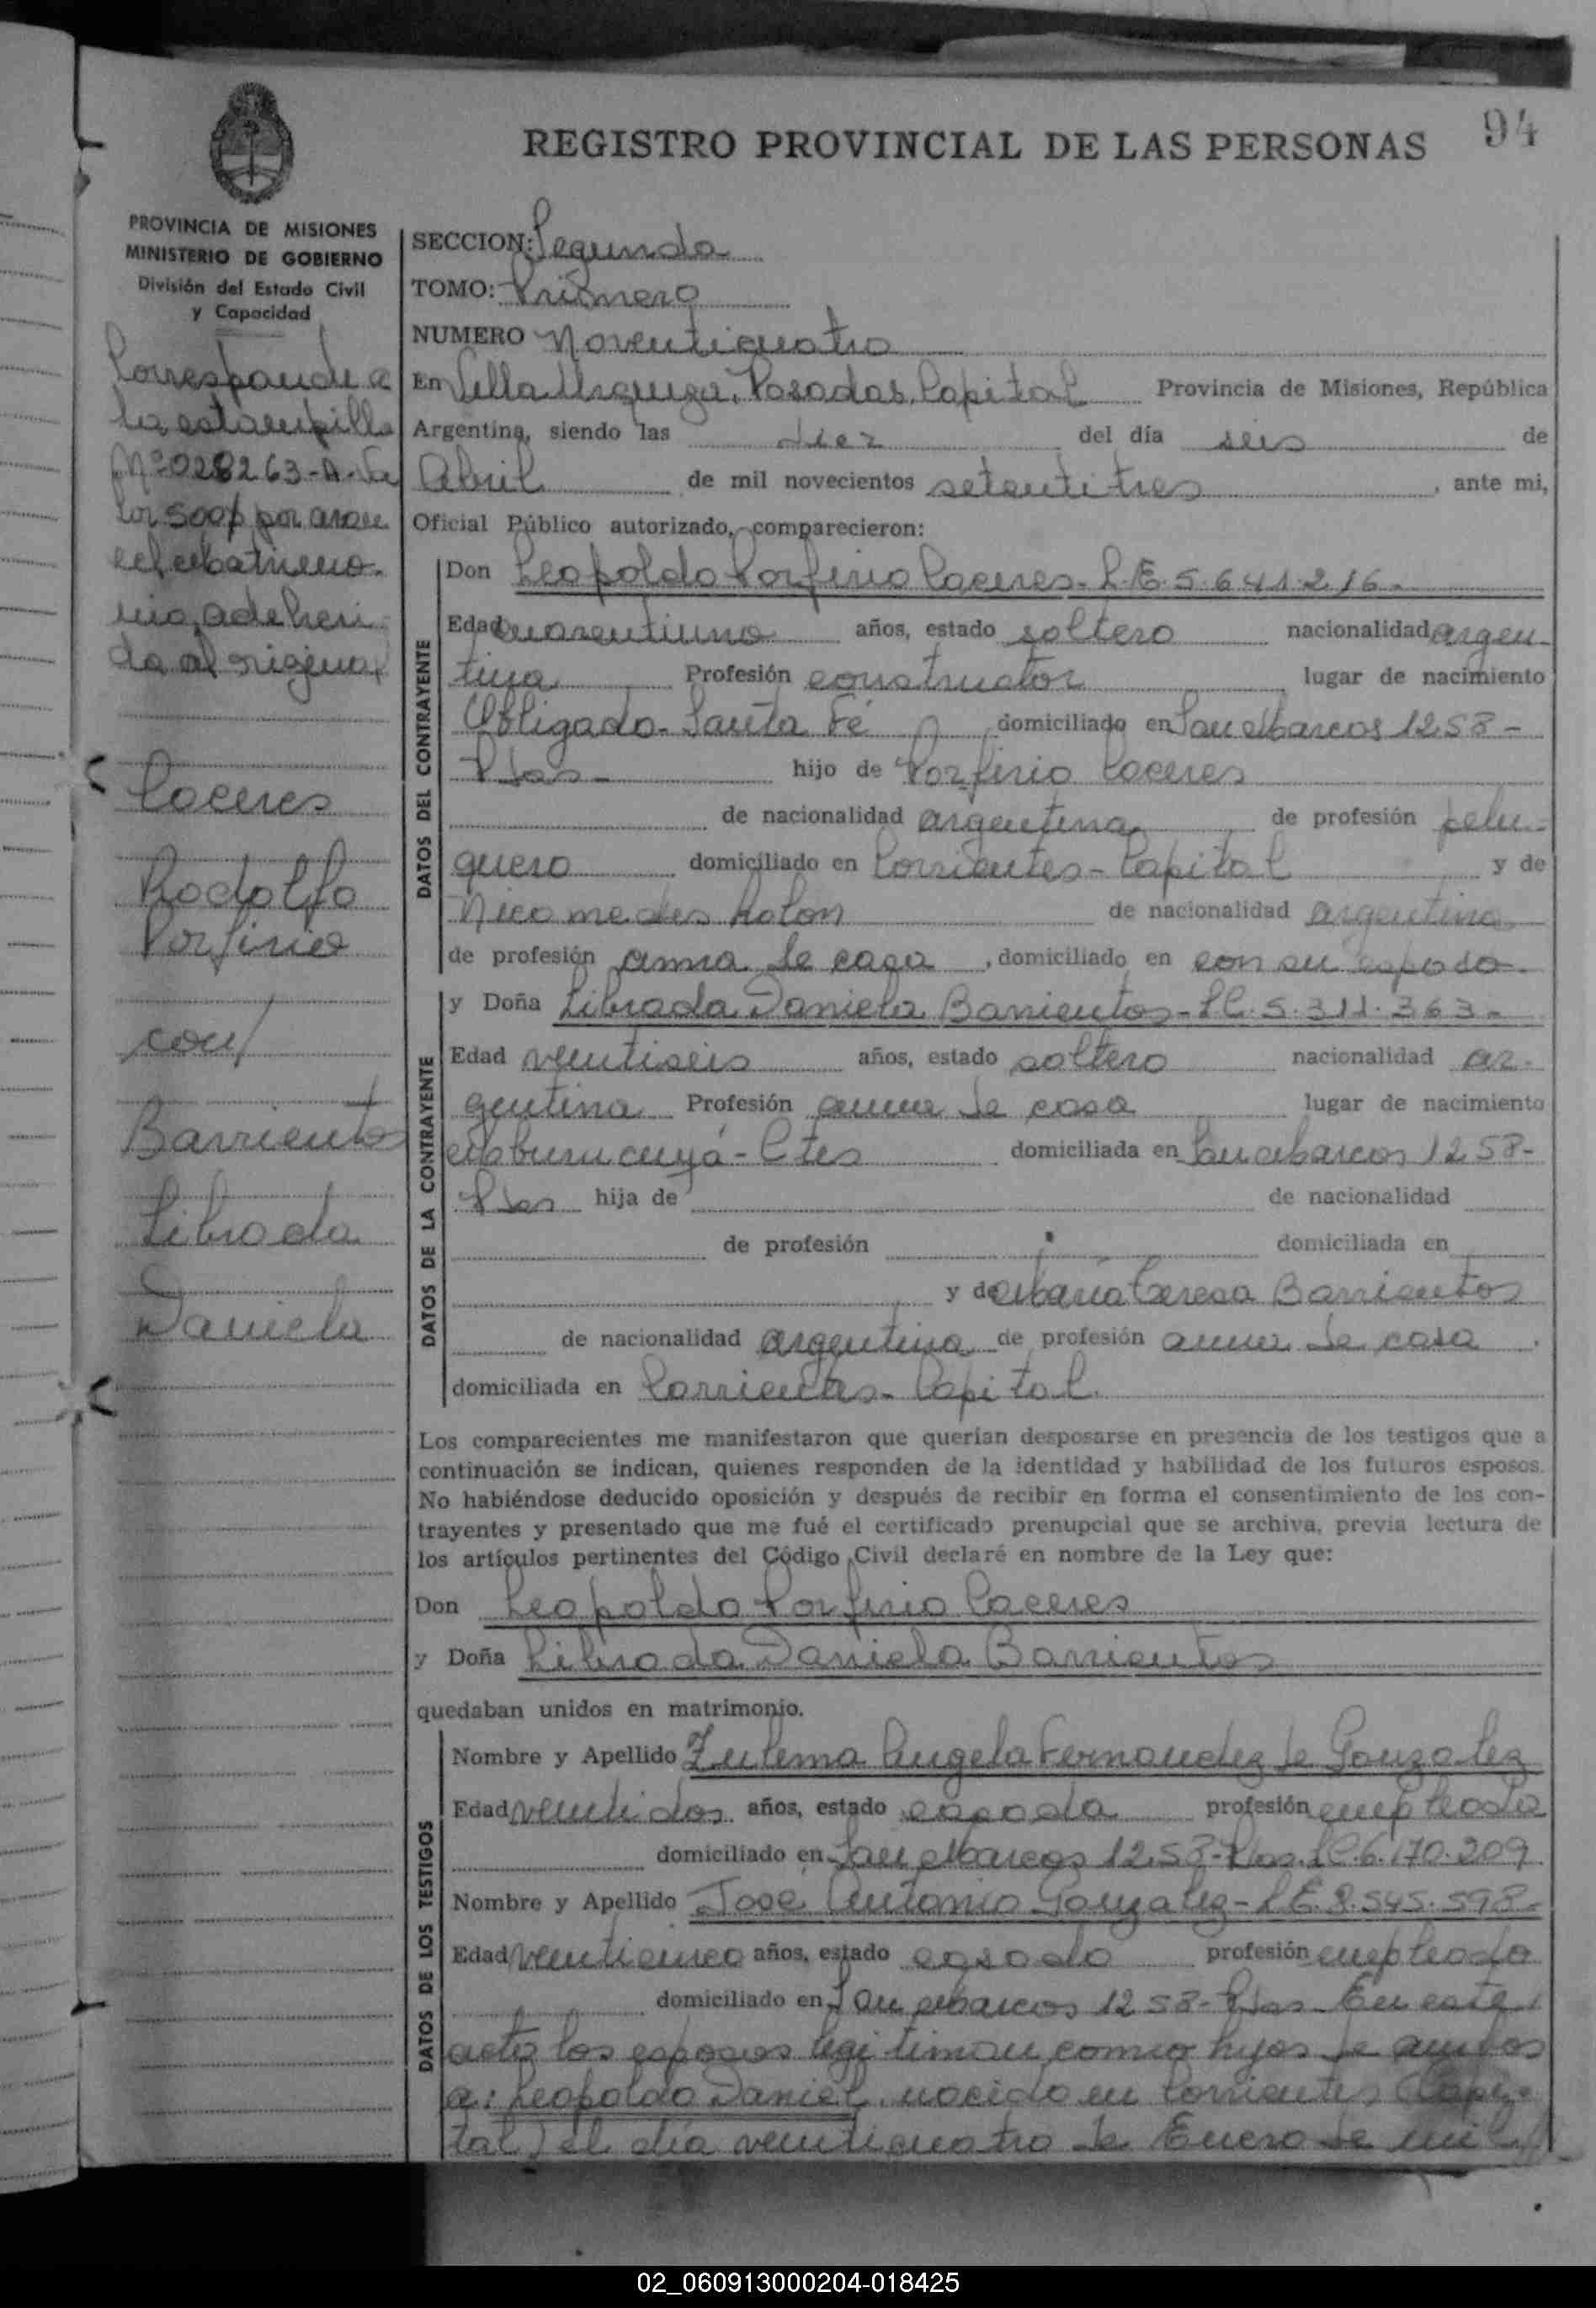 94
REGISTRO PROVINCIAL DE LAS PERSONAS
PROVINCIA DE MISIONES
MINISTERIO DE GOBIERNO
División del Estado Civil
y Capacidad
Corresponde a
la estampilla
Nº 028263-A-Va
lor 500$ por aran
cel matrimo-
nio, adheri
da al original
Caceres
Rodolfo
Porfirio
con/
Barrientos
Librada
Daniela
SECCION: Segunda
TOMO: Primero
NUMERO Noventicuatro
En Villa Urquiza, Posadas, Capital Provincia de Misiones, República
Argentina, siendo las diez del día seis de
Abril de mil novecientos setentitres, ante mi,
Oficial Público autorizado, comparecieron:
DATOS DEL CONTRAYENTE
Don Leopoldo Porfirio Caceres- L.E. 5.641.216-
Edad cuarentiuno años, estado soltero nacionalidad argen-
tina Profesión constructor lugar de nacimiento
Obligado- Santa Fé domiciliado en San Marcos 1258-
Pdas- hijo de Porfirio Caceres
de nacionalidad argentina de profesión pelu-
quero domiciliado en Corrientes- Capital y de
Nicomedes Rolon de nacionalidad argentina
de profesión ama de casa, domiciliado en con su esposo.
DATOS DE LA CONTRAYENTE
y Doña Librada Daniela Barrientos- LC. 5.311.363-
Edad veintiseis años, estado soltero nacionalidad ar-
gentina Profesión ama de casa lugar de nacimiento
Mburucuyá- Ctes domiciliada en San Marcos 1258-
Pdas hija de de nacionalidad
de profesión domiciliada en
y de Maria Teresa Barrientos
de nacionalidad argentina de profesión ama de casa.
domiciliada en Corrientes- Capital.
Los comparecientes me manifestaron que querían desposarse en presencia de los testigos que a
continuación se indican, quienes responden de la identidad y habilidad de los futuros esposos.
No habiéndose deducido oposición y después de recibir en forma el consentimiento de los con-
trayentes y presentado que me fué el certificado prenupcial que se archiva, previa lectura de
los artículos pertinentes del Código Civil declaré en nombre de la Ley que:
Don Leopoldo Porfirio Caceres
y Doña Librada Daniela Barrientos
quedaban unidos en matrimonio.
DATOS DE LOS TESTIGOS
Nombre y Apellido Zulema Angela Fernandez de Gonzalez
Edad veintidos años, estado casada profesión empleada
domiciliado en San Marcos 1258- Pdas. LC. 6.170.209
Nombre y Apellido José Antonio Gonzalez- L.E. 8.545.598-
Edad veinticinco años, estado casado profesión empleado
domiciliado en San Marcos 1258- Pdas- En este
acto los esposos legitiman como hijos de ambos
a: Leopoldo Daniel, nacido en Corrientes (Capi-
tal) el día veinticuatro de Enero de mil
02_060913000204-018425